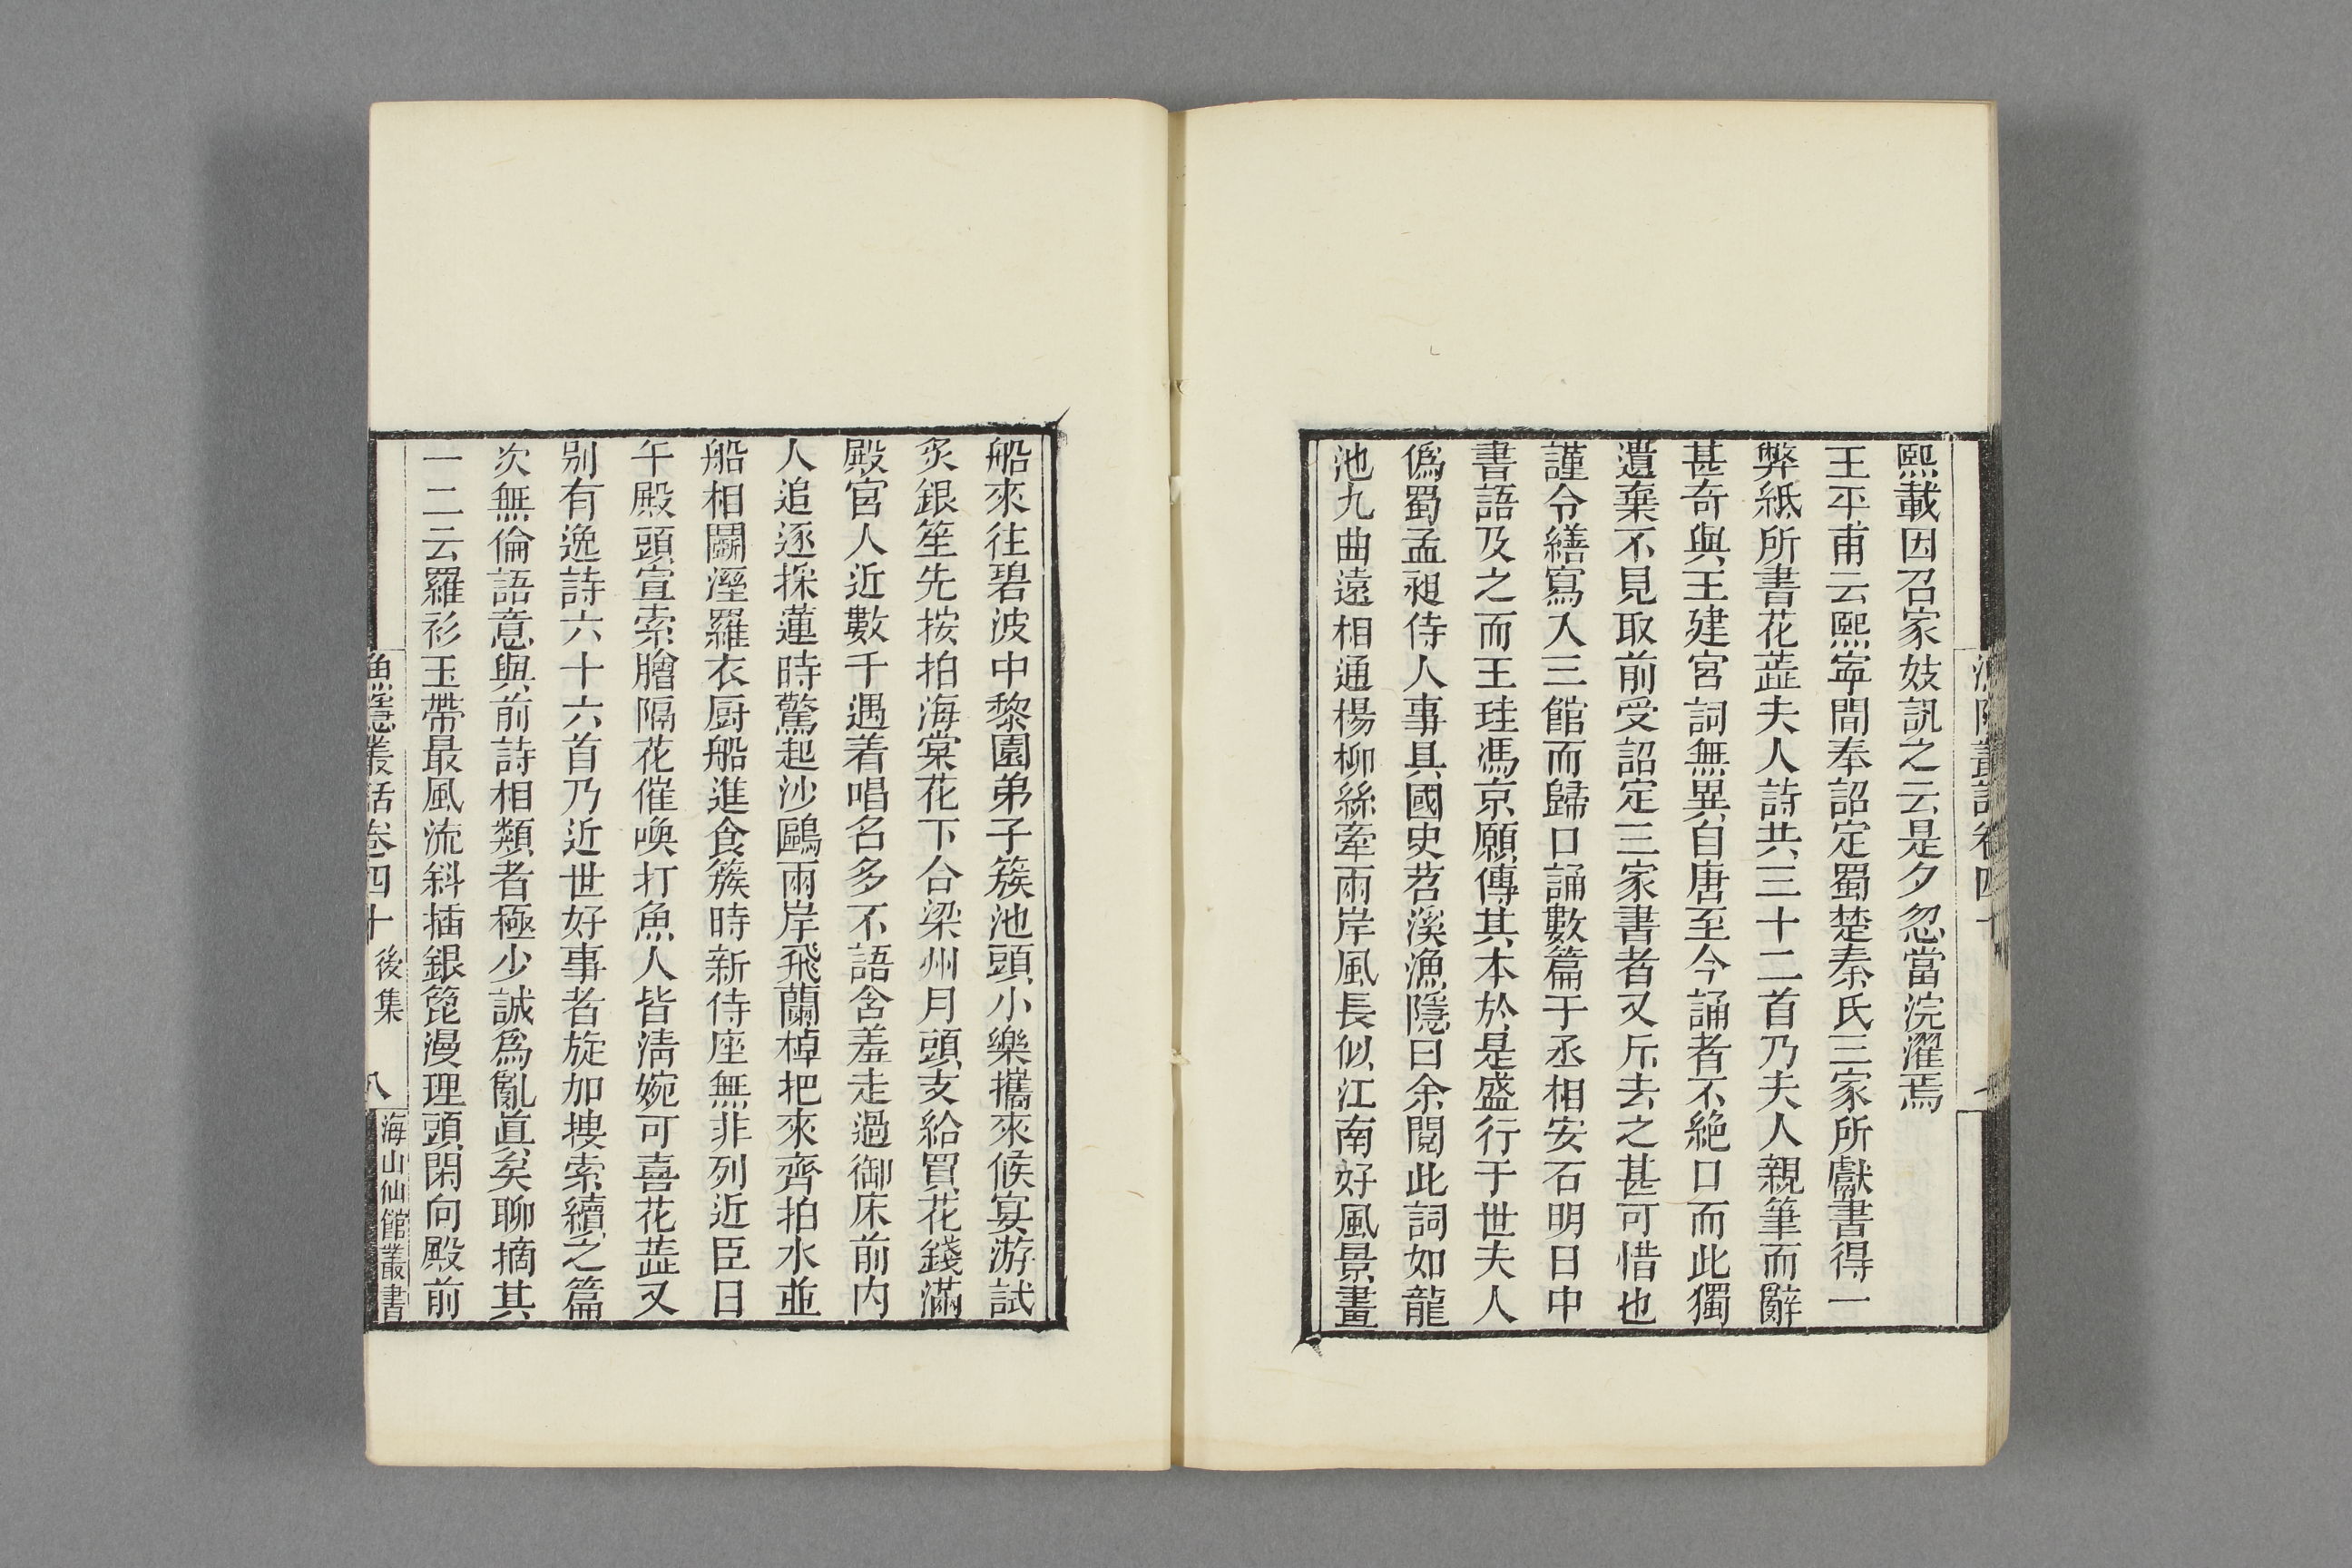 熙載因召家妓訊之云是夕忽當浣濯焉
王平甫云熙寧間奉詔定蜀楚秦氏三家所獻書得一
弊紙所書花蘂夫人詩共三十二首乃夫人親筆而辭
甚奇與王建宮詞無異自唐至今誦者不絶口而此獨
遺棄不見取前受詔定三家書者又斥去之甚可惜也
謹令繕寫入三館而歸口誦數篇于丞相安石明日中
書語及之而王珪馮京願傳其本於是盛行于世夫人
偽蜀孟昶侍人事具國史苕溪漁隱曰余閱此詞如龍
池九曲遠相通楊柳絲牽兩岸風長似江南好風景畫
船來往碧波中黎園弟子簇池頭小樂攜來候宴游試
炙銀笙先按拍海棠花下合梁州月頭支給買花錢滿
殿宮人近數千遇着唱名多不語含羞走過御床前内
人追逐採蓮時驚起沙鷗兩岸飛蘭棹把來齊拍水並
船相鬭溼羅衣厨船進食簇時新侍座無非列近臣日
午殿頭宣索膾隔花催喚打魚人皆清婉可喜花蘂又
别有逸詩六十六首乃近世好事者旋加摟索續之篇
次無倫語意與前詩相類者極少誠爲亂眞矣聊摘其
一二云羅衫玉帶最風流斜插銀箆漫理頭閑向殿前
漁隱叢話卷四十 後集 八 海山仙館叢書